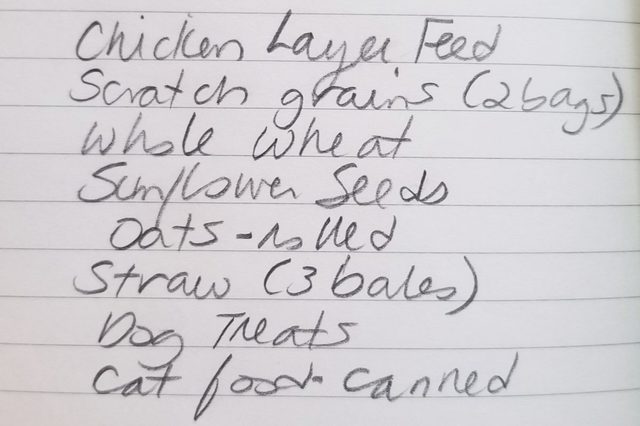 Chicken Layer Feed
Scratch grains (2 bags)
Whole Wheat
Sunflower Seeds
Oats - rolled
Straw (3 bales)
Dog Treats
Cat food - canned